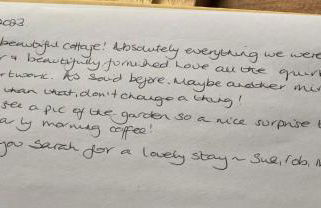 beautiful cottage! Absolutely everything we were
& beautifully furnished Love all the quir
rtwork. As said before, Maybe another mir
than that, don't change a thing!
see a pic of the garden so a nice surprise t
arly morning coffee!
you Sarah for a lovely stay ~ Sue, rob,